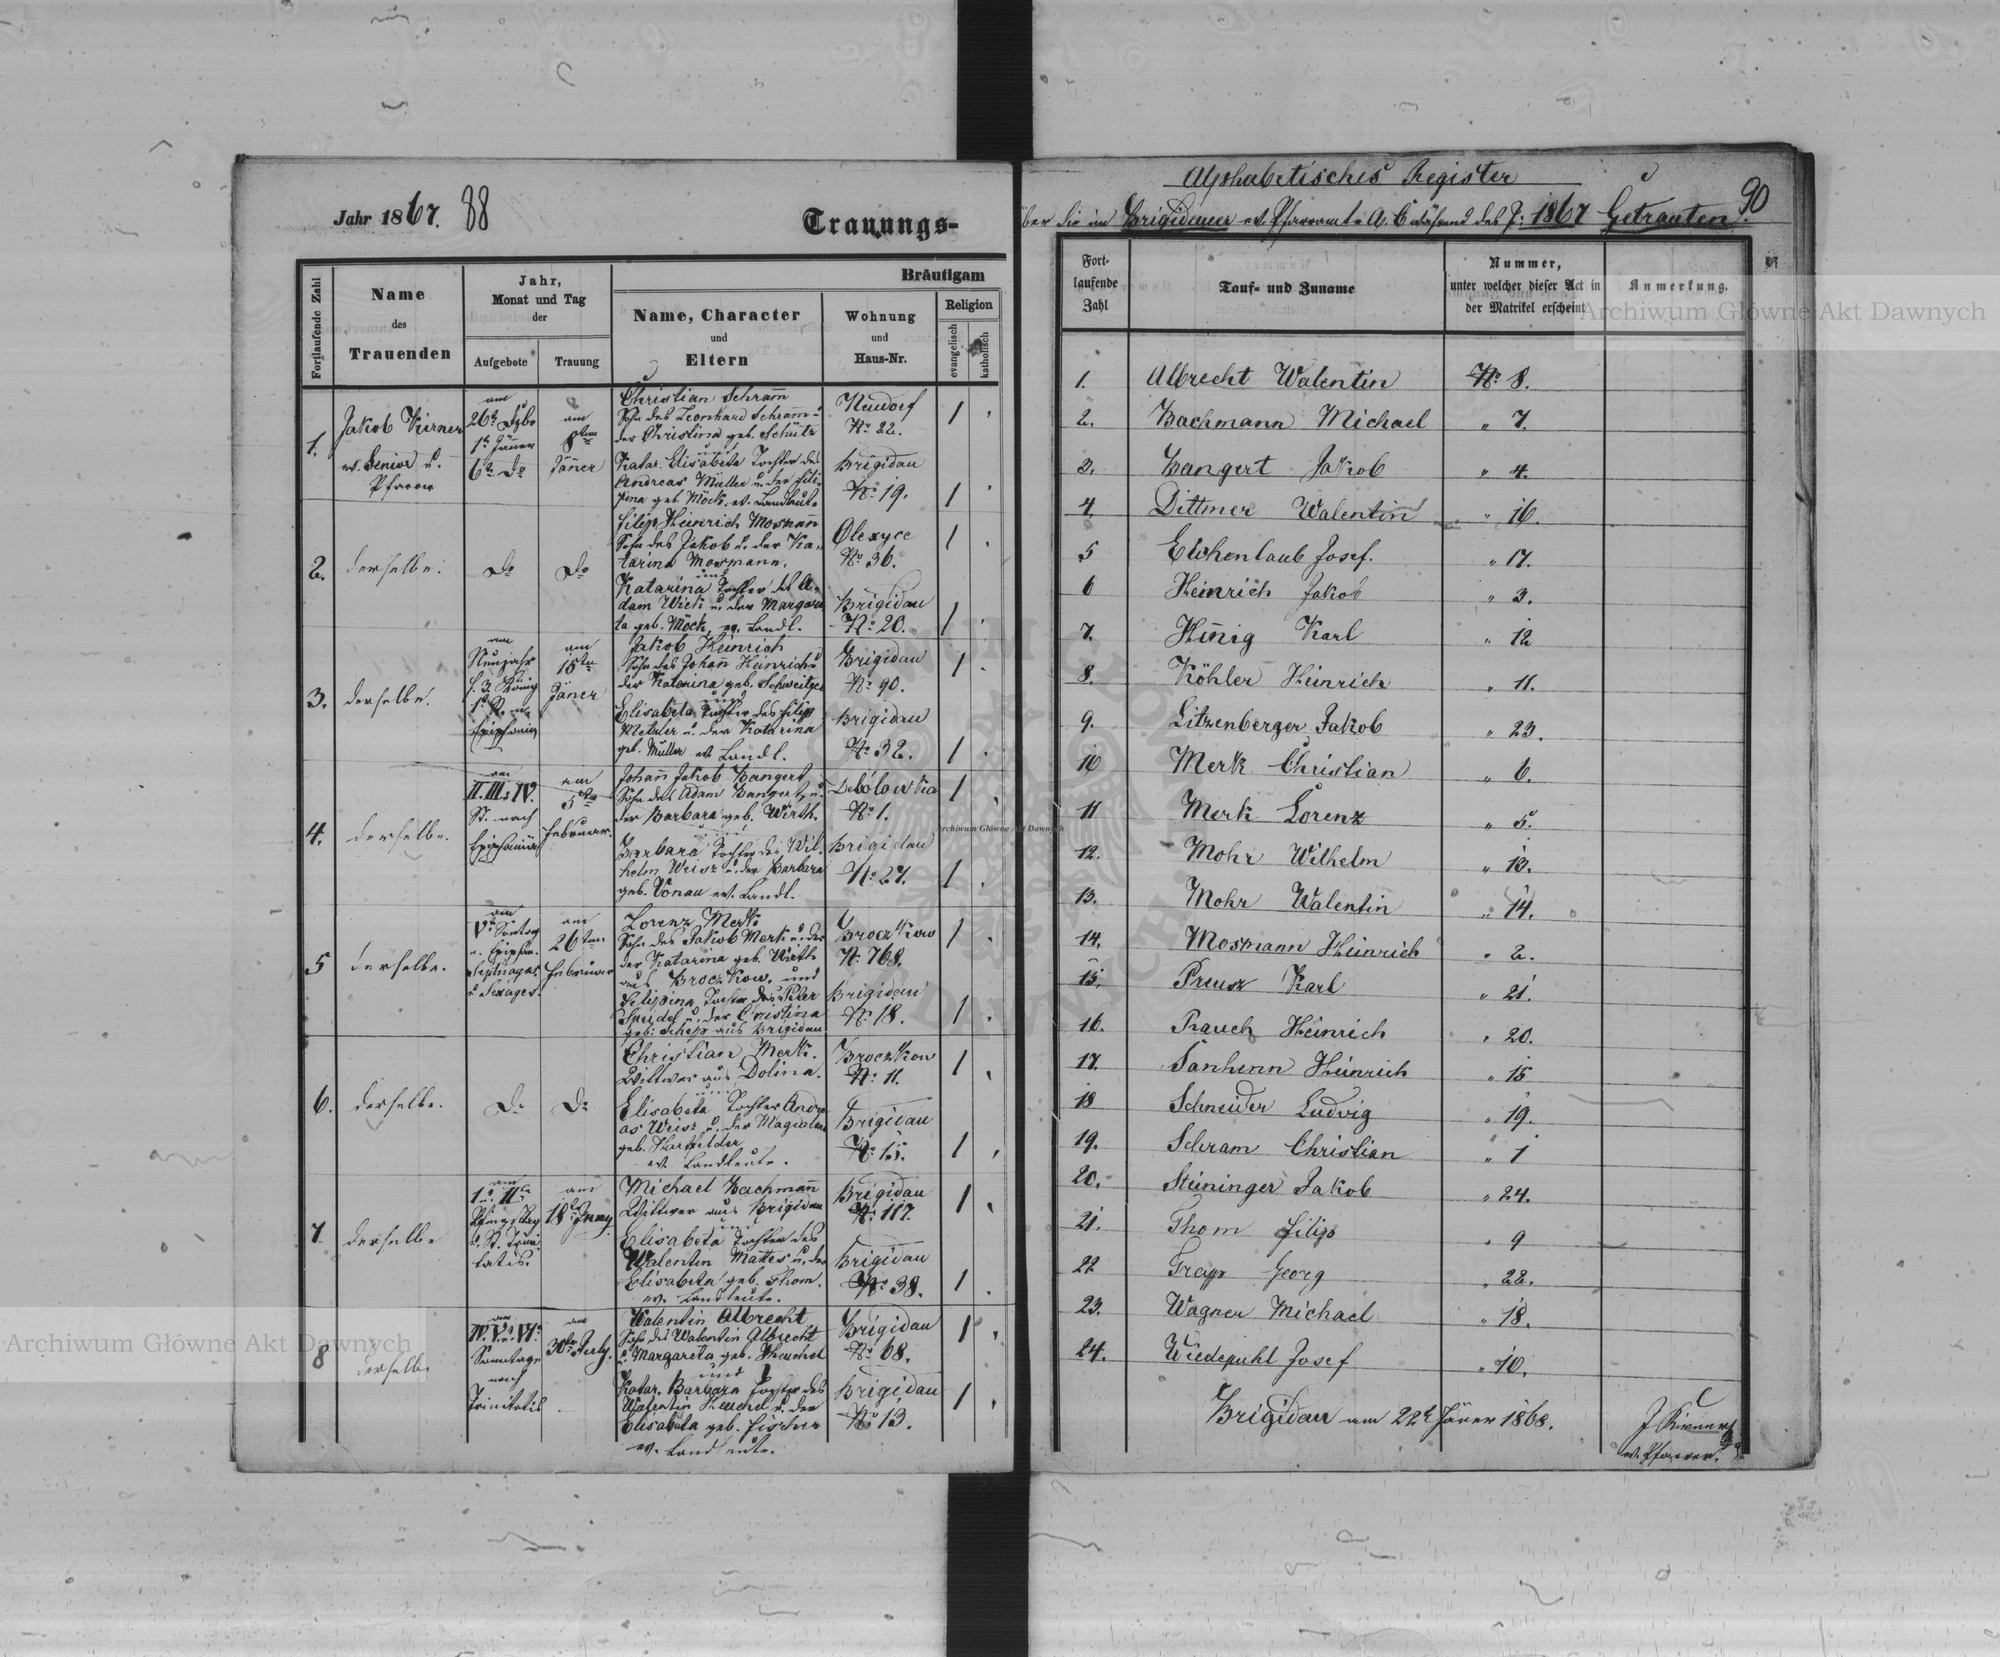 Jahr 1867. 88
Trauungs-
Fortlaufende Zahl
Name
des
Trauenden
Jahr,
Monat und Tag
der
Aufgebote
Trauung
Bräutigam
Name, Character
und
Eltern
Wohnung
und
Haus-Nr.
Religion
evangelisch
katholisch
1.
Jakob Kirner
ev. Senior u.
Pfarrer
am
1t Jäner
6t do
am
8ten
Jäner
Christian Schram̄
Sohn des Leonhard Schram̄ u.
der Christina geb. Schütz
und
Katar. Elisabeta Tochter des
Andreas Müller u. der Fili-
pina geb. Möck. ev. Landleute
Neudorf
No 22.
Brigidau
No 19.
2.
derselbe.
do
do
Filip Heinrich Mosman̄
Sohn des Jakob u. der Ka-
tarina Mosmann.
und
Katarina Tochter des A-
dam Wick u. der Margare
ta geb. Möck, ev. Landl.
Olexyce
No 36.
Brigidau
No 20.
3.
derselbe.
am
Neujahr
f. 3. König
am
15ten
Jäner
Jakob Heinrich
Sohn des Johan̄ Heinrich u.
der Katarina geb. Schweitzer
und
Elisabeta Tochter des Filip
Metzler u. der Katarina
geb. Müller ev. Landl.
Brigidau
No 90.
Brigidau
No 32.
4.
derselbe.
am
II. III. u. IV.
St. nach
Epiphaniä
am
5ten
Februar.
Johan̄ Jakob Bangert
Sohn des Adam Bangert u.
der Barbara geb. Wirth.
und
Barbara Tochter des Wil-
helm Weisz u. der Barbara
geb. Vonau ev. Landl.
Debolowka
No 1.
Brigidau
No 27.
5
derselbe.
am
V. Sontag
n. Epiphan.
Septuages.
u. Sexages.
am
26ten
Februar
Lorenz Merk
Sohn des Jakob Merk u. der
der Katarina geb. Wirth
aus Broczkow, und
Felipina, Tochter des Peter
Speidel u. der Cristina
geb. Schepp aus Brigidau
Broczkow
N. 768.
Brigidau
No 18.
6.
derselbe.
do
do
Christian Merk.
Wittwer aus Dolina.
und
Elisabeta Tochter Andre
as Weisz u. der Magdalena
geb. Harfelder
ev. Landleute.
Broczkow
No 11.
Brigidau
No 15.
7
derselbe
am
I. u. II.
u. St. Trini
tatis.
am
18t Juny
Michael Bachman̄
Wittwer aus Brigidau
und
Elisabeta Tochter des
Walentin Mattes u. der
Elisabeta geb. Thom.
ev. Landleute.
Brigidau
No 117.
Brigidau
No 38.
8
derselbe
am
IV. V. u. VI.
Sonntage
nach
Trinitatis
am
30ten July.
Walentin Albrecht
Sohn des Walentin Albrecht
u. Margareta geb. Heuchel
und
Katar. Barbara Tochter des
Walentin Heuchel u. der
Elisabeta geb. Fischer
ev. Landleute.
Brigidau
No 68.
Brigidau
No 13.
Alphabetisches Register
90
über die im Brigidauer ev. Pfarramte A. C während des J: 1867 Getrauten
Fort-
laufende
Zahl
Tauf- und Zuname
Nummer,
unter welcher dieser Act in
der Matrikel erscheint
Anmerkung.
1. Albrecht Walentin No 8.
2. Bachmann Michael " 7.
3. Bangert Jakob " 4.
4. Dittmer Walentin " 16.
5 Eichenlaub Josef. " 17.
6 Heinrich Jakob " 3.
7. Hen̄ig Karl " 12
8. Köhler Heinrich " 11.
9. Litzenberger Jakob " 23.
10 Merk Christian " 6.
11 Merk Lorenz " 5.
12. Mohr Wilhelm " 13.
13. Mohr Walentin " 14.
14. Mosmann Heinrich " 2.
15. Preusz Karl " 21.
16. Rauch Heinrich " 20.
17. Sanhenn Heinrich " 15
18 Schneider Ludvig " 19.
19. Schram Christian " 1
20. Steininger Jakob " 24.
21. Thom Filip " 9
22 Trapp Georg " 22.
23. Wagner Michael " 18.
24. Wiedepuhl Josef " 10.
Brigidau am 22t Jäner 1868.
J Kirner
ev. Pfarrer.
Archiwum Główne Akt Dawnych
Archiwum Główne Akt Dawnych
Archiwum Główne Akt Dawnych